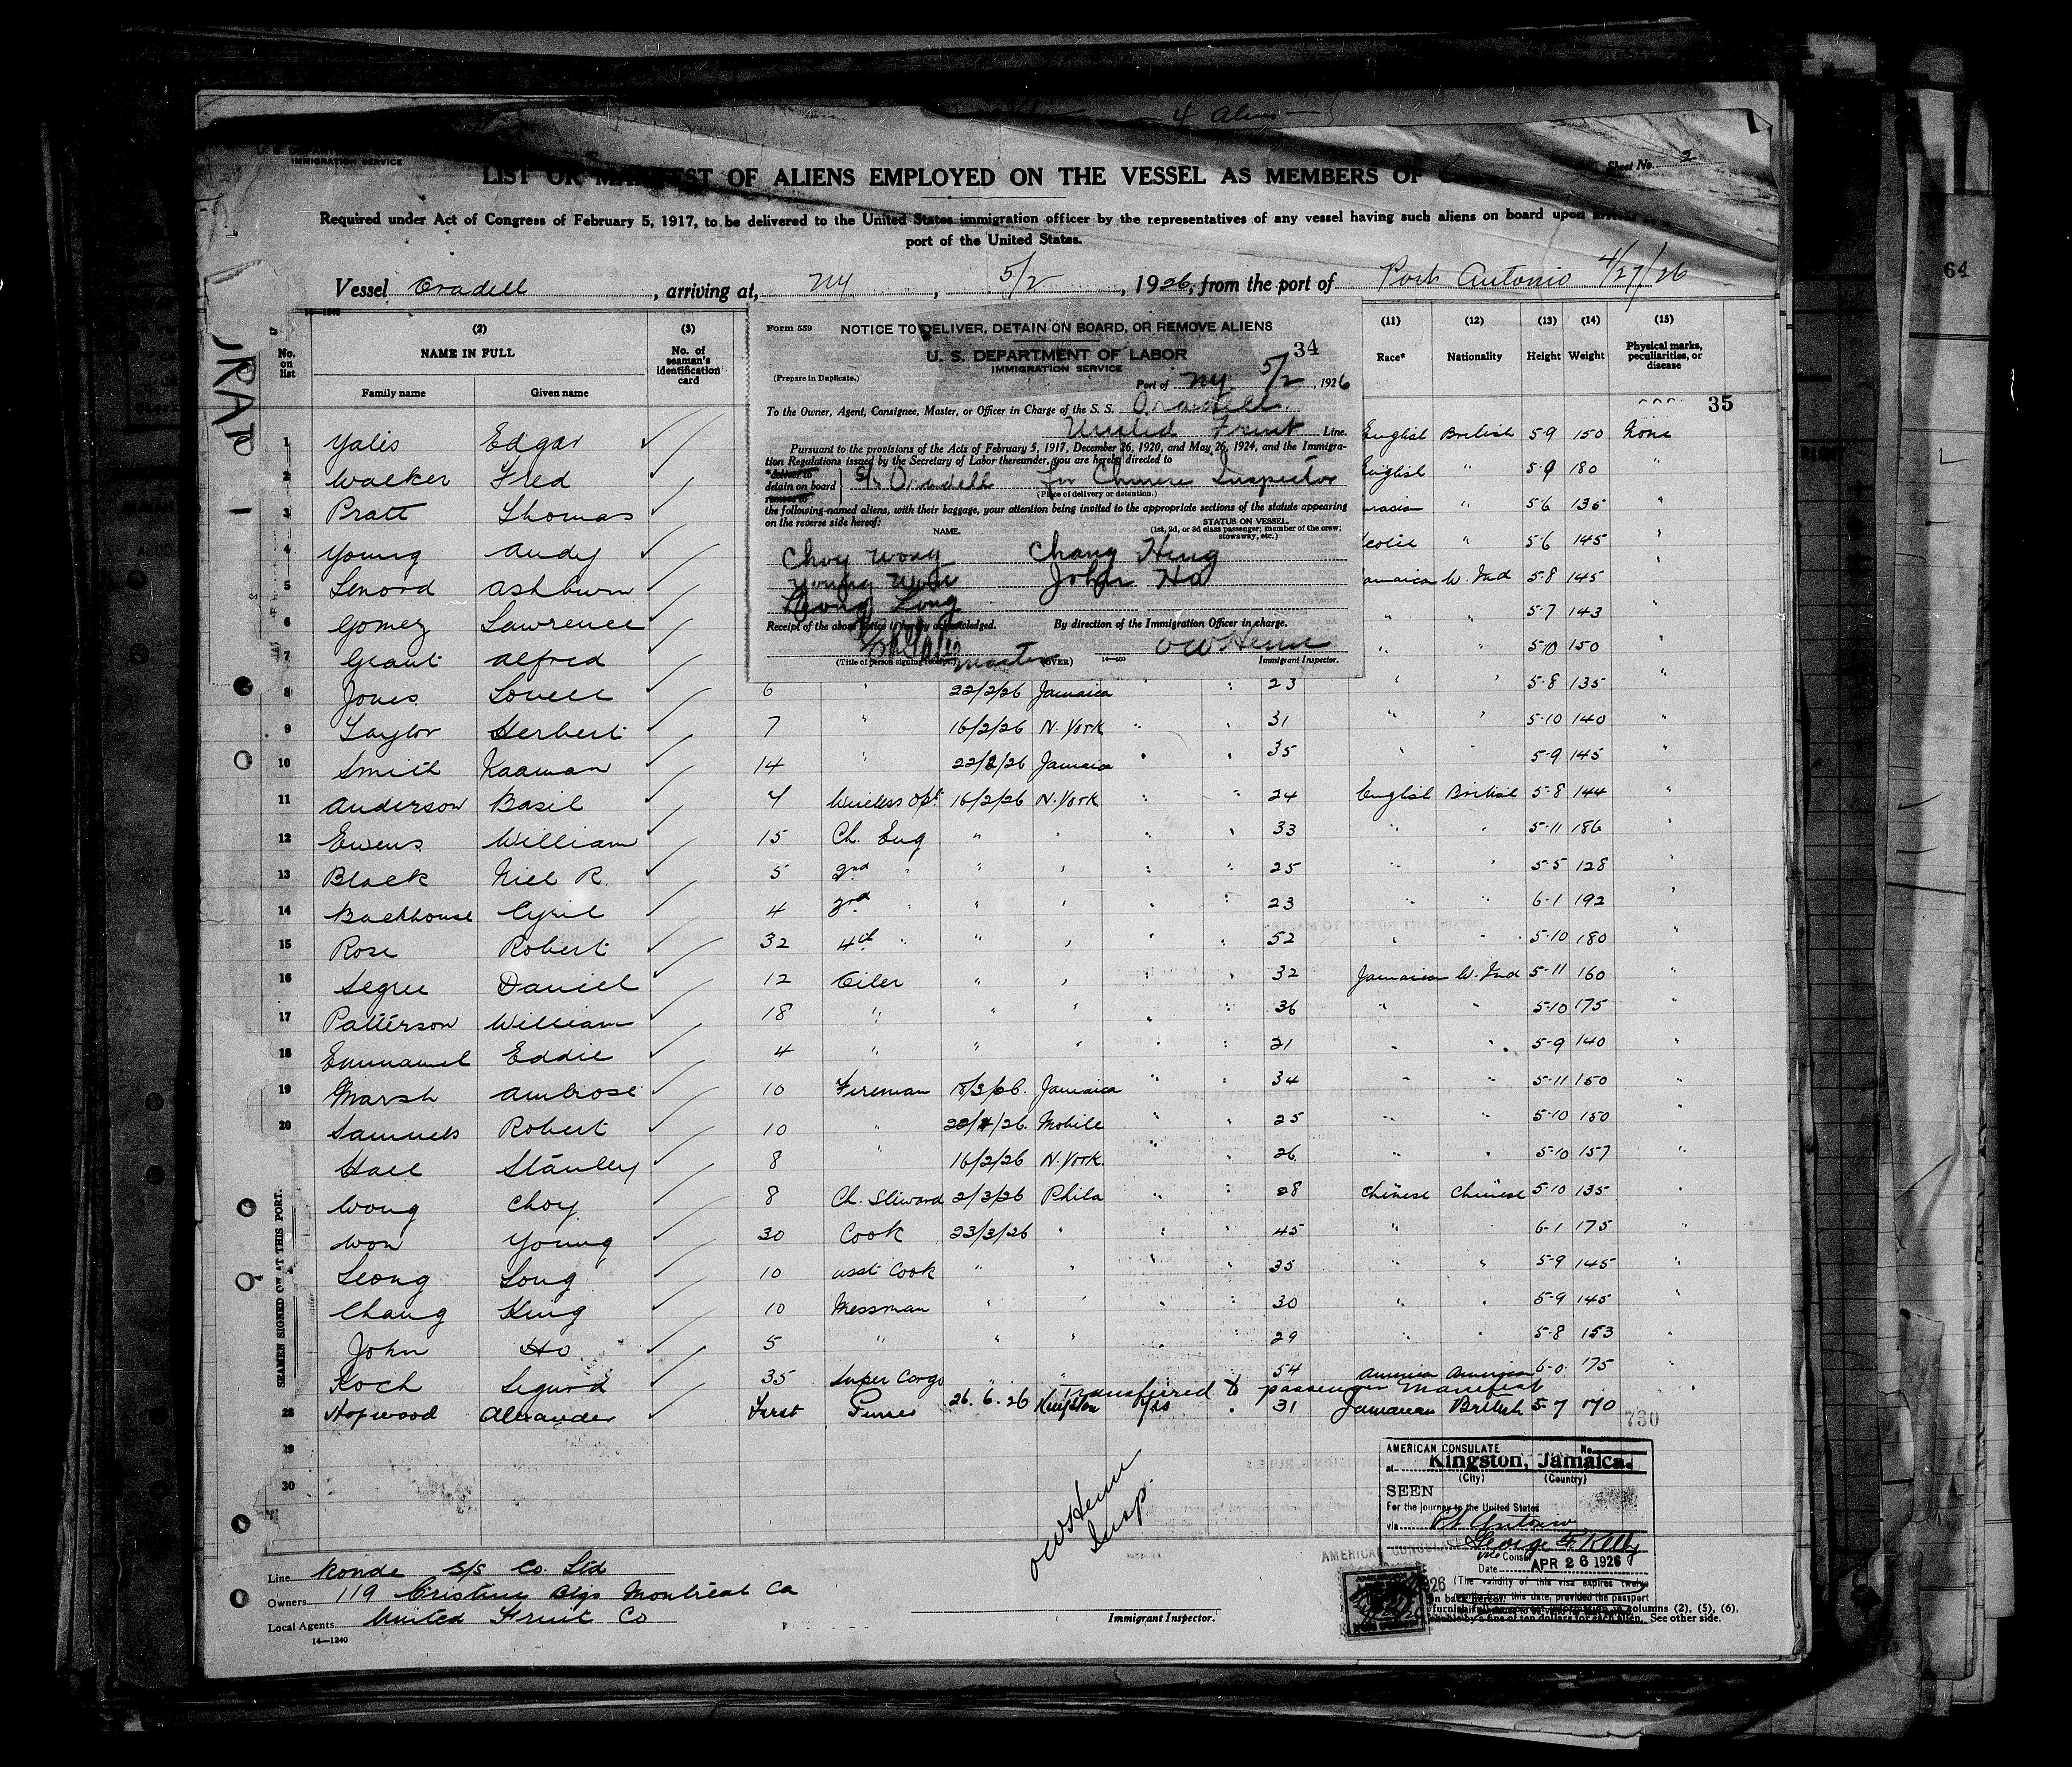 4 Aliens
IMMIGRATION SERVICE
Sheet No. 2
LIST OR MANIFEST OF ALIENS EMPLOYED ON THE VESSEL AS MEMBERS OF
Required under Act of Congress of February 5, 1917, to be delivered to the United States immigration officer by the representatives of any vessel having such aliens on board upon arrival
port of the United States.
Vessel Oradell, arriving at, NY, 5/2, 1926, from the port of Port Antonio 4/27/26
14—1240
No. on list
(2) NAME IN FULL
Family name Given name
(3) No. of seaman's identification card
(11) Race* (12) Nationality (13) Height (14) Weight (15) Physical marks, peculiarities, or disease
35
Form 559 NOTICE TO DELIVER, DETAIN ON BOARD, OR REMOVE ALIENS
U. S. DEPARTMENT OF LABOR 34
IMMIGRATION SERVICE
(Prepare in Duplicate.) Port of NY 5/2, 1926
To the Owner, Agent, Consignee, Master, or Officer in Charge of the S. S. Oradell
United Fruit Line.
Pursuant to the provisions of the Acts of February 5, 1917, December 26, 1920, and May 26, 1924, and the Immigra-
tion Regulations issued by the Secretary of Labor thereunder, you are hereby directed to
deliver to
detain on board S/S Oradell for Chinese Inspector
remove to
(Place of delivery or detention.)
the following-named aliens, with their baggage, your attention being invited to the appropriate sections of the statute appearing
on the reverse side hereof:
NAME. STATUS ON VESSEL
(1st, 2d, or 3d class passenger; member of the crew; stowaway, etc.)
Choy Wong Chang Hing
Young Won John Ho
Leong Long
Receipt of the above notice is hereby acknowledged. By direction of the Immigration Officer in charge.
Master OW Henn
(Title of person signing receipt.) (OVER) 14—460 Immigrant Inspector.
1 Yales Edgar English British 5-9 150 None
2 Walker Fred English " 5-9 180 "
3 Pratt Thomas " 5-6 135 "
4 Young Andy " 5-6 145 "
5 Lenord Ashburn Jamaica W. Ind 5-8 145 "
6 Gomez Lawrence " " 5-7 143 "
7 Grant Alfred " " 5-10 150 "
8 Jones Lovell 6 " 22/2/26 Jamaica " " 23 " " 5-8 135 "
9 Taylor Herbert 7 " 16/2/26 N. York " " 31 " " 5-10 140 "
10 Smith Naaman 14 " 22/2/26 Jamaica " " 35 " " 5-9 145 "
11 Anderson Basil 4 Wireless Opt. 16/2/26 N. York " " 24 English British 5-8 144 "
12 Ewens William 15 Ch. Eng " " " " 33 " " 5-11 186 "
13 Black Niel R. 5 2nd " " " " " 25 " " 5-5 128 "
14 Backhouse Cyril 4 3rd " " " " " 23 " " 6-1 192 "
15 Rose Robert 32 4th " " " " " 52 " " 5-10 180 "
16 Segree Daniel 12 Oiler " " " " 32 Jamaica W. Ind 5-11 160 "
17 Patterson William 18 " " " " " 36 " " 5-10 175 "
18 Emmanuel Eddie 4 " " " " " 21 " " 5-9 140 "
19 Marsh Ambrose 10 Fireman Jamaica " " 34 " " 5-11 150 "
20 Samuels Robert 10 " Mobile " " 25 " " 5-10 150 "
Hall Stanley 8 " 16/2/26 N. York " " 26 " " 5-10 157 "
Wong Choy 8 Ch. Steward 2/3/26 Phila " " 28 Chinese Chinese 5-10 135 "
Won Young 30 Cook 23/3/26 " " " 45 " " 6-1 175 "
Leong Long 10 Asst Cook " " " " 35 " " 5-9 145 "
Chang Hing 10 Messman " " " " 30 " " 5-9 145 "
John Ho 5 " " " " " 29 " " 5-8 153 "
Koch Sigurd 35 Super Cargo " " 54 America American 6-0 175 "
transferred to passenger manifest
28 Hopwood Alexander First Purser 26.6.26 Kingston Yes " 31 Jamaican British 5-7 170
730
29
30
SEAMEN SIGNED ON AT THIS PORT.
OW Henn
Insp.
AMERICAN CONSULATE No.
at Kingston, Jamaica.
(City) (Country)
SEEN
For the journey to the United States
via Pt Antonio
George F. Kelly
Vice Consul
Date APR 26 1926
(The validity of this visa expires twelve
this date, provided the passport
Line Ronde S/S Co. Ltd
Owners 119 Cristine Blgs Montreal Ca
Local Agents United Fruit Co
14—1240
Immigrant Inspector.
columns (2), (5), (6),
See other side.
64